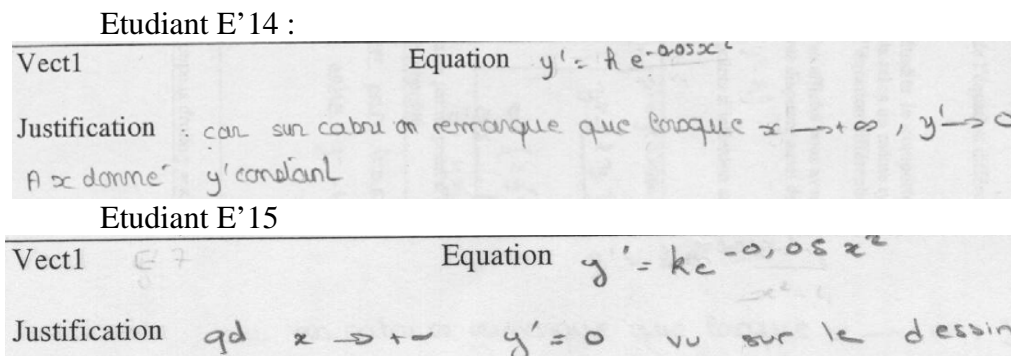 Etudiant E'14 :
Vect1 Equation y' = k e^-0,05x²
Justification : car sur cabri on remarque que lorsque x → +∞, y' → 0
A x donné y' constant
Etudiant E'15
Vect1 Equation y' = ke^-0,05x²
Justification qd x → +∞ y' = 0 vu sur le dessin